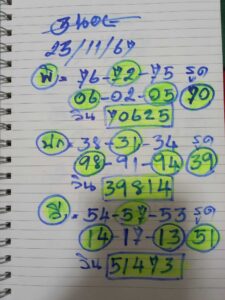 23/11/67
พี่ = 76-72-75 รูด
06-02-05 70
วิน 70625
ปก = 38-31-34 รูด
98-91-94 39
วิน 39814
สี่ = 54-57-53 รูด
14-17-13 51
วิน 51473